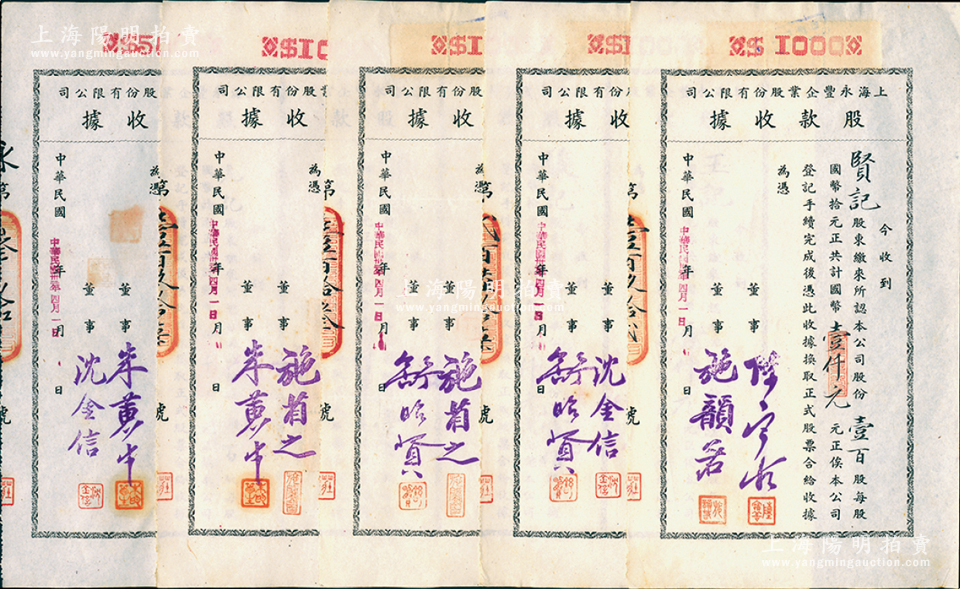 上海陽明拍賣
www.yangmingauction.com
$ 1000
上海永豐企業股份有限公司
股款收據
今收到
賢記股東繳來所認本公司股份壹百股每股
國幣拾元正共計國幣壹仟元元正俟本公司
登記手續完成後憑此收據換取正式股票合給收據
為憑
中華民國 年 月 日
董事
施韻若
$1
股份有限公司
收據
為憑
第壹百九拾貳號
中華民國 年 月 日
董事
沈金信
舒昭賢
$1
股份有限公司
收據
中華民國 年 月 日
董事
董事
施省之
舒昭賢
$10
股份有限公司
收據
為憑
中華民國 年 月 日
董事
董事
施省之
朱黄中
$5
股份有限公司
收據
為憑
中華民國 年 月 日
董事
董事
朱黄中
沈金信
上海陽明拍賣
www.yangmingauction.com